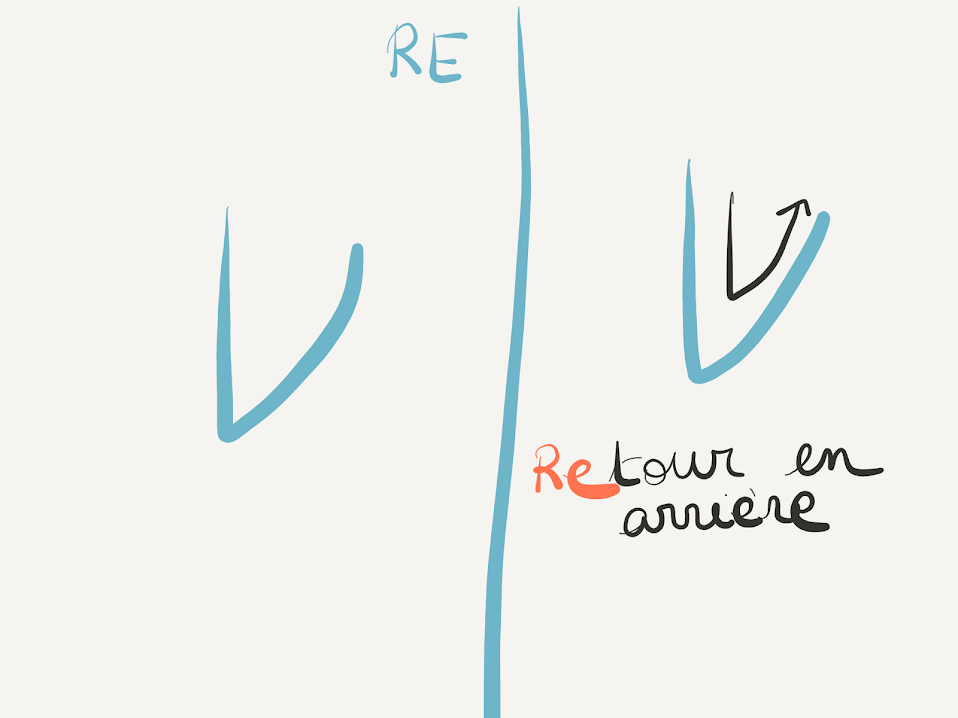 RE
Retour en
arrière